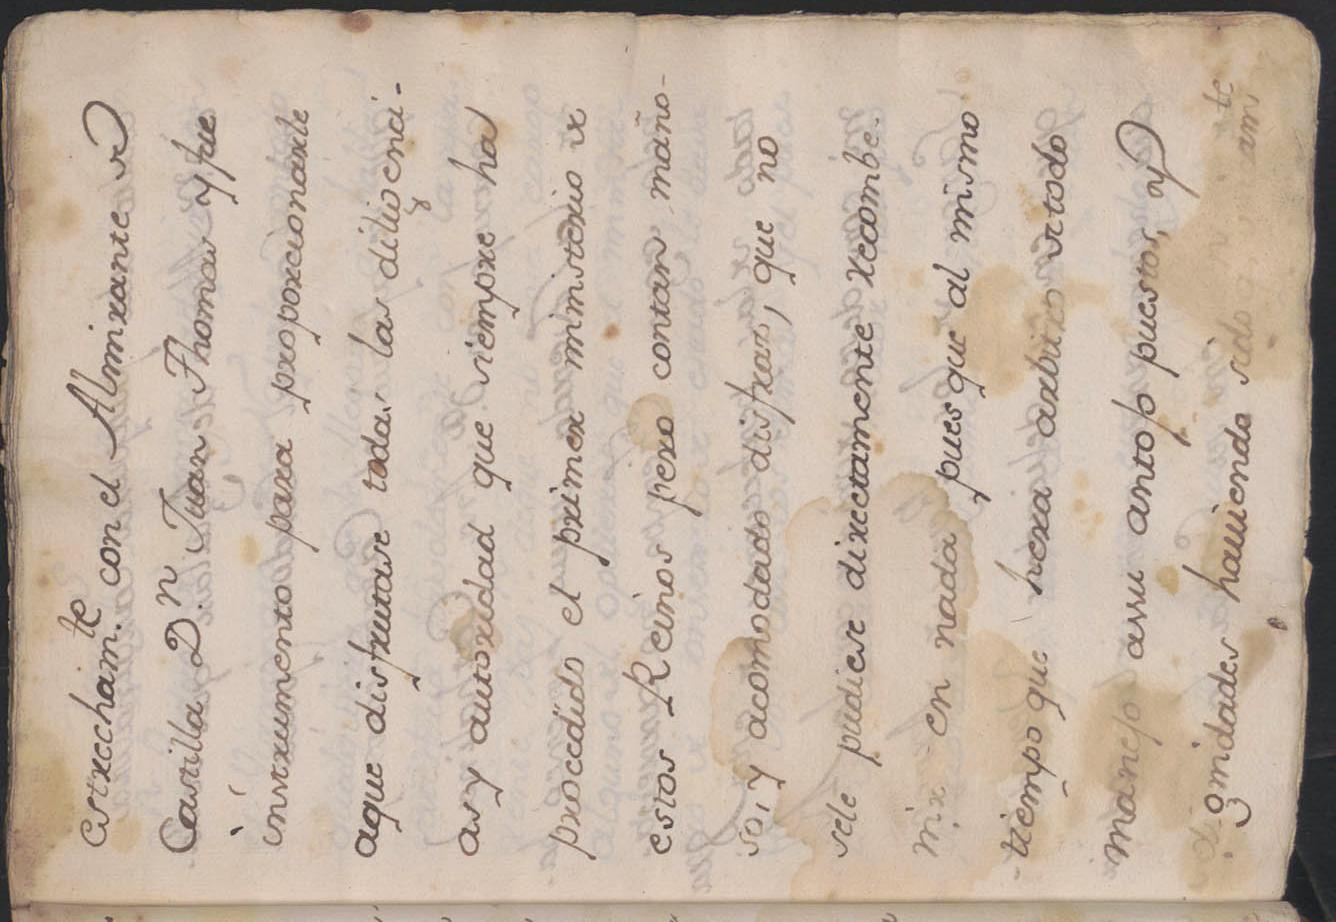 estrecham.te con el Almirante de
Castilla D.n Juan Thomas y fue
instrumento para proporcionarle
aque disfrutase todas las dilig enci-
as y autoridad que siempre ha
procedido el primer ministerio de
estos Reinos pero contan maño-
so, y acomodado disfraz, que no
sele pudiese directamente recombe-
nir en nada, pues que al mismo
tiempo que hera arbitro de todo
manejo assu antojo puestos, y
dignidades haviendo sido